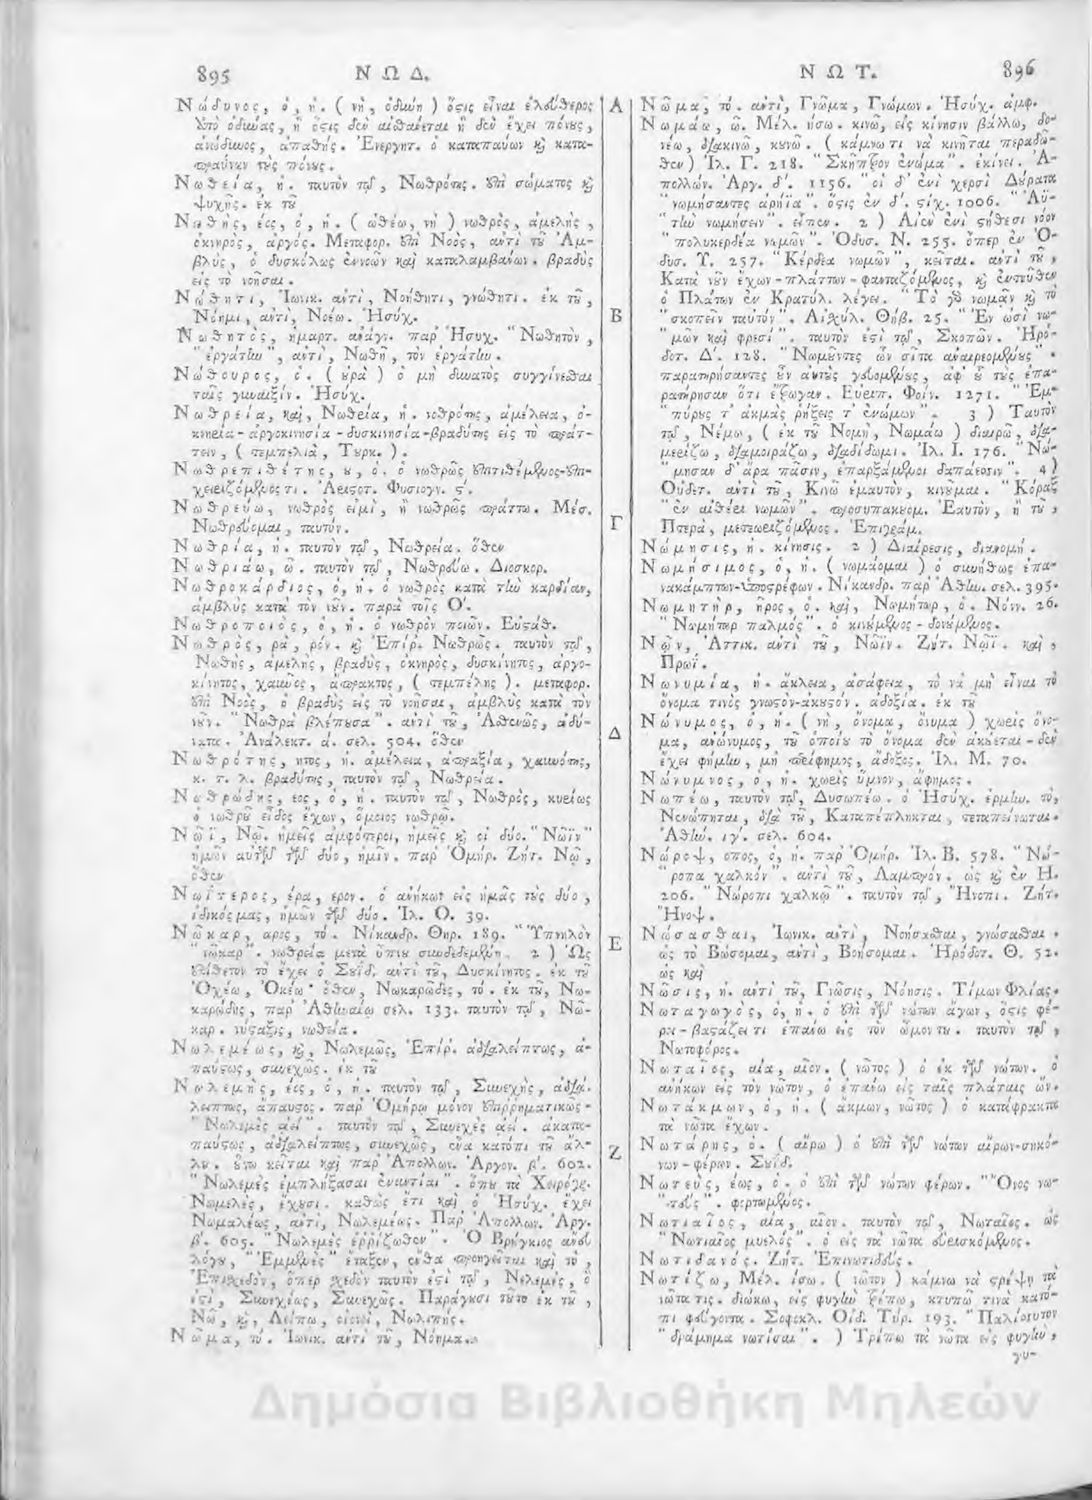 895 ΝΩΔ.
Νώδυνος, ὁ, ἡ. ( νὴ, ὀδύνη ) ὅστις εἶναι ἐλεύθερος
ὑπὸ ὀδύνας, ἢ ὅστις δὲν αἰσθάνεται ἢ δὲν ἔχει πόνους,
ἀνώδυνος, ἀπαθής. Ἐνεργητ. ὁ καταπαύων καὶ κατα-
πραΰνων τοὺς πόνους.
Νωθεία, ἡ. ταυτὸν τῷ, Νωθρότης. ἐπὶ σώματος καὶ
ψυχῆς. ἐκ τοῦ
Νωθής, έος, ὁ, ἡ. ( ὠθέω, νὴ ) νωθρὸς, ἀμελὴς,
ὀκνηρὸς, ἀργός. Μεταφορ. ἐπὶ Νοὸς, ἀντὶ τοῦ Ἀμ-
βλὺς, ὁ δυσκόλως ἐννοῶν καὶ καταλαμβάνων. βραδὺς
εἰς τὸ νοῆσαι.
Νώθητι, Ἰωνικ. ἀντὶ, Νοήθητι, γνώθητι. ἐκ τοῦ,
Νόημι, ἀντὶ, Νοέω. Ἡσύχ.
Νωθητὸς, ἡμαρτ. ἀνάγν. παρ' Ἡσυχ. "Νωθητὸν,
"ἐργάτην", ἀντὶ, Νωθῆ, τὸν ἐργάτην.
Νώθουρος, ὁ. ( οὐρὰ ) ὁ μὴ δυνατὸς συγγίνεσθαι
ταῖς γυναιξίν. Ἡσυχ.
Νωθρεία, καὶ, Νωθεία, ἡ. νωθρότης, ἀμέλεια, ὀ-
κνηεία - ἀργοκινησία - δυσκινησία - βραδύτης εἰς τὸ πράτ-
τειν, ( τεμπελιὰ, Τυρκ. ).
Νωθρεπιθέτης, ου, ὁ. ὁ νωθρῶς ἐπιτιθέμενος - ἐπι-
χειριζόμενος τι. Ἀριστοτ. Φυσιογν. ϛ'.
Νωθρεύω, νωθρὸς εἰμὶ, ἢ νωθρῶς πράττω. Μέσ.
Νωθρεύομαι, ταυτόν.
Νωθρία, ἡ. ταυτὸν τῷ, Νωθρεία. ὅθεν
Νωθριάω, ῶ. ταυτὸν τῷ, Νωθρεύω. Διοσκορ.
Νωθροκάρδιος, ὁ, ἡ. ὁ νωθρὸς κατὰ τὴν καρδίαν,
ἀμβλὺς κατὰ τὸν νοῦν. παρὰ τοῖς Ο'.
Νωθροποιὸς, ὁ, ἡ. ὁ νωθρὸν ποιῶν. Εὐσταθ.
Νωθρὸς, ρὰ, ρόν. καὶ Ἐπίρ. Νωθρῶς. ταυτὸν τῷ,
Νωθὴς, ἀμελὴς, βραδὺς, ὀκνηρὸς, δυσκίνητος, ἀργο-
κίνητος, χαῦνος, ἄπρακτος, ( τεμπέλης ). μεταφορ.
ἐπὶ Νοὸς, ὁ βραδὺς εἰς τὸ νοῆσαι, ἀμβλὺς κατὰ τὸν
νοῦν. "Νωθρὰ βλέπουσα". ἀντὶ τοῦ, Ἀσθενῶς, ἀδύ-
νατα. Ἀνάλεκτ. ά. σελ. 504. ὅθεν
Νωθρότης, ητος, ἡ. ἀμέλεια, ἀπραξία, χαυνότης,
κ. τ. λ. βραδύτης, ταυτὸν τῷ, Νωθρεία.
Νωθρώδης, εος, ὁ, ἡ. ταυτὸν τῷ, Νωθρὸς, κυρίως
ὁ νωθροῦ εἶδος ἔχων, ὅμοιος νωθρῷ.
Νῶϊ, Νώ. ἡμεῖς ἀμφότεροι, ἡμεῖς καὶ οἱ δύο. "Νῶϊν"
ἡμῶν αὐτῶν τῶν δύο, ἡμῖν. παρ' Ὁμήρ. Ζήτ. Νὼ,
ὅθεν
Νωΐτερος, έρα, ερον. ὁ ἀνήκων εἰς ἡμᾶς τοὺς δύο,
ἰδικός μας, ἡμῶν τῶν δύο. Ἰλ. Ο. 39.
Νῶκαρ, αρος, τό. Νίκανδρ. Θηρ. 189. "Ὑπνηλὸν
"νῶκαρ". νωθρεία μετὰ ὕπνου συνδεδεμένη. 2 ) Ὡς
ἐπίθετον τὸ ἔχει ὁ Σουΐδ. ἀντὶ τοῦ, Δυσκίνητος. ἐκ τοῦ
Ὀχέω, Ὀκέω· ὅθεν, Νωκαρῶδες, τό. ἐκ τοῦ, Νω-
καρώδης, παρ' Ἀθηναίῳ σελ. 133. ταυτὸν τῷ, Νῶ-
καρ. νύσταξις, νωθεία.
Νωλεμέως, καὶ, Νωλεμῶς, Ἐπίρ. ἀδιαλείπτως, ἀ-
παύστως, συνεχῶς. ἐκ τοῦ
Νωλεμὴς, έος, ὁ, ἡ. ταυτὸν τῷ, Συνεχὴς, ἀδιά-
λειπτος, ἄπαυστος. παρ' Ὁμήρῳ μόνον ἐπιρρηματικῶς.
"Νωλεμὲς αἰεί". ταυτὸν τῷ, Συνεχὲς ἀεί. ἀκατα-
παύστως, ἀδιαλείπτως, συνεχῶς, ἕνα κατόπι τοῦ ἄλ-
λου. οὕτω κεῖται καὶ παρ' Ἀπολλων. Ἀργον. β'. 602.
"Νωλεμὲς ἐμπλήξασαι ἐναντίαι". ὅπου τὰ Χειρόγρ.
Νωμελὲς, ἔχουσι. καθὼς ἔτι καὶ ὁ Ἡσύχ. ἔχει
Νωμαλέως, ἀντὶ, Νωλεμέως. Παρ' Ἀπολλων. Ἀργ.
β'. 605. "Νωλεμὲς ἐρρίζωθεν". Ὁ Βρύγκιος ἀντὶ
λόγου, "Ἐμμενὲς" ἔταξεν, ἔνθα προηγεῖται καὶ τὸ,
Ἐπισχεδὸν, ὅπερ σχεδὸν ταυτὸν ἐστὶ τῷ, Νωλεμὲς, ὅ
ἐστὶ, Συνεχέως, Συνεχῶς. Παράγουσι τοῦτο ἐκ τοῦ,
Νῶ, καὶ, Λείπω, οἱονεὶ, Νωλιπής.
Νῶμα, τό. Ἰωνικ. ἀντὶ τοῦ, Νόημα.
Α
Β
Γ
Δ
Ε
Ζ
ΝΩΤ. 896
Νῶμα, τό. ἀντὶ, Γνῶμα, Γνώμων. Ἡσύχ. ἀμφ.
Νωμάω, ῶ. Μέλ. ήσω. κινῶ, εἰς κίνησιν βάλλω, δο-
νέω, διακινῶ, κουνῶ. ( κάμνω τι νὰ κινῆται περαδῶ-
θεν ) Ἰλ. Γ. 218. "Σκῆπτρον ἐνώμα". ἐκίνει. Ἀ-
πολλών. Ἀργ. δ'. 1156. "οἱ δ' ἐνὶ χερσὶ Δούρατα
"νωμήσαντες ἀρήϊα". ὅστις ἐν δ'. στίχ. 1006. "Αὐ-
"τὴν νωμήσειν". εἶπεν. 2 ) Αἰὲν ἐνὶ στήθεσι νόον
"πολυκερδέα νωμῶν". Ὀδυσ. Ν. 255. ὅπερ ἐν Ὀ-
δυσ. Υ. 257. "Κέρδεα νωμῶν", κεῖται. ἀντὶ τοῦ,
Κατὰ νοῦν ἔχων - πλάττων - φανταζόμενος, καὶ ἐντεῦθεν
ὁ Πλάτων ἐν Κρατύλ. λέγει. "Τὸ γὰρ νωμᾶν καὶ τὸ
"σκοπεῖν ταυτόν". Αἰσχύλ. Θήβ. 25. "Ἐν ὠσὶ νω-
"μῶν καὶ φρεσί". ταυτὸν ἐστὶ τῷ, Σκοπῶν. Ἡρό-
δοτ. Δ'. 128. "Νωμῶντες ὦν σῖτα ἀναιρεομένους".
παρατηρήσαντες οὖν αὐτοὺς γευομένους, ἀφ' οὗ τοὺς ἐπα-
ρατήρησαν ὅτι ἔτρωγαν. Εὐριπ. Φοίν. 1271. "Ἐμ-
"πύρους τ' ἀκμὰς ῥήξεις τ' ἐνώμων". 3 ) Ταυτὸν
τῷ, Νέμω, ( ἐκ τοῦ Νομὴ, Νωμάω ) διαιρῶ, δια-
μερίζω, διαμοιράζω, διαδίδωμι. Ἰλ. Ι. 176. "Νώ-
"μησαν δ' ἄρα πᾶσιν, ἐπαρξάμενοι δεπάεσσιν". 4)
Οὐδετ. ἀντὶ τοῦ, Κινῶ ἐμαυτὸν, κινοῦμαι. "Κόραξ
"ἐν αἰθέρι νωμῶν". προσυπακουομ. Ἑαυτὸν, ἢ τὰ,
Πτερὰ, μετεωριζόμενος. Ἐπιγραμ.
Νώμησις, ἡ. κίνησις. 2 ) Διαίρεσις, διανομή.
Νωμήσιμος, ὁ, ἡ. ( νωμάομαι ) ὁ συνήθως ἐπα-
νακάμπτων - ὑποστρέφων. Νίκανδρ. παρ' Ἀθην. σελ. 395.
Νωμητὴρ, ῆρος, ὁ. καὶ, Νωμήτωρ, ὁ. Νόνν. 26.
"Νωμήτωρ παλμός". ὁ κινούμενος - δονούμενος.
Νῷν, Ἀττικ. ἀντὶ τοῦ, Νῶϊν. Ζήτ. Νῶϊ. καὶ,
Πρωΐ.
Νωνυμία, ἡ. ἄκλεια, ἀσάφεια, τὸ νὰ μὴ εἶναι τὸ
ὄνομα τινὸς γνωστὸν - ἀκουστόν. ἀδοξία. ἐκ τοῦ
Νώνυμος, ὁ, ἡ. ( νὴ, ὄνομα, ὄνυμα ) χωρὶς ὄνο-
μα, ἀνώνυμος, τοῦ ὁποίου τὸ ὄνομα δὲν ἀκούεται - δὲν
ἔχει φήμην, μὴ περίφημος, ἄδοξος. Ἰλ. Μ. 70.
Νώνυμνος, ὁ, ἡ. χωρὶς ὕμνον, ἄφημος.
Νωπέω, ταυτὸν τῷ, Δυσωπέω. ὁ Ἡσύχ. ἑρμην. τὸ,
Νενώπηται, διὰ τοῦ, Καταπέπληκται, τεταπείνωται.
Ἀθήν. ιγ'. σελ. 604.
Νῶροψ, οπος, ὁ, ἡ. παρ' Ὁμήρ. Ἰλ. Β. 578. "Νώ-
"ροπα χαλκόν". ἀντὶ τοῦ, Λαμπρόν. ὡς καὶ ἐν Η.
206. "Νώροπι χαλκῷ". ταυτὸν τῷ, Ἤνοπι. Ζήτ.
Ἤνοψ.
Νώσασθαι, Ἰωνικ. ἀντὶ, Νοήσασθαι, γνώσασθαι.
ὡς τὸ Βώσομαι, ἀντὶ, Βοήσομαι. Ἡρόδοτ. Θ. 52.
ὡς καὶ
Νῶσις, ἡ. ἀντὶ τοῦ, Γνῶσις, Νόησις. Τίμων Φλίας.
Νωταγωγὸς, ὁ, ἡ. ὁ ἐπὶ τῶν νώτων ἄγων, ὅστις φέ-
ρει - βαστάζει τι ἐπάνω εἰς τὸν ὦμον του. ταυτὸν τῷ,
Νωτοφόρος.
Νωταῖος, αία, αῖον. ( νῶτος ) ὁ ἐκ τῶν νώτων. ὁ
ἀνήκων εἰς τὸν νῶτον, ὁ ἐπάνω εἰς ταῖς πλάταις ὤν.
Νωτάκμων, ὁ, ἡ. ( ἄκμων, νῶτος ) ὁ κατάφρακτα
τὰ νῶτα ἔχων.
Νωτάρης, ὁ. ( αἴρω ) ὁ ἐπὶ τῶν νώτων αἴρων - σηκό-
νων - φέρων. Σουΐδ.
Νωτεὺς, έως, ὁ. ὁ ἐπὶ τῶν νώτων φέρων. "Ὄνος νω-
"τεύς". φορτωμένος.
Νωτιαῖος, αία, αῖον. ταυτὸν τῷ, Νωταῖος. ὡς
"Νωτιαῖος μυελός". ὁ εἰς τὰ νῶτα εὑρισκόμενος.
Νωτιδανός. Ζήτ. Ἐπινωτιδεύς.
Νωτίζω, Μέλ. ίσω. ( νῶτον ) κάμνω νὰ στρέψῃ τὰ
νῶτα τις. διώκω, εἰς φυγὴν τρέπω, κτυπῶ τινὰ κατό-
πι φεύγοντα. Σοφοκλ. Οἰδ. Τύρ. 193. "Παλίσσυτον
"δράμημα νωτίσαι". ) Τρέπω τὰ νῶτα εἰς φυγὴν,
γυ-
Δημόσια Βιβλιοθήκη Μηλεών